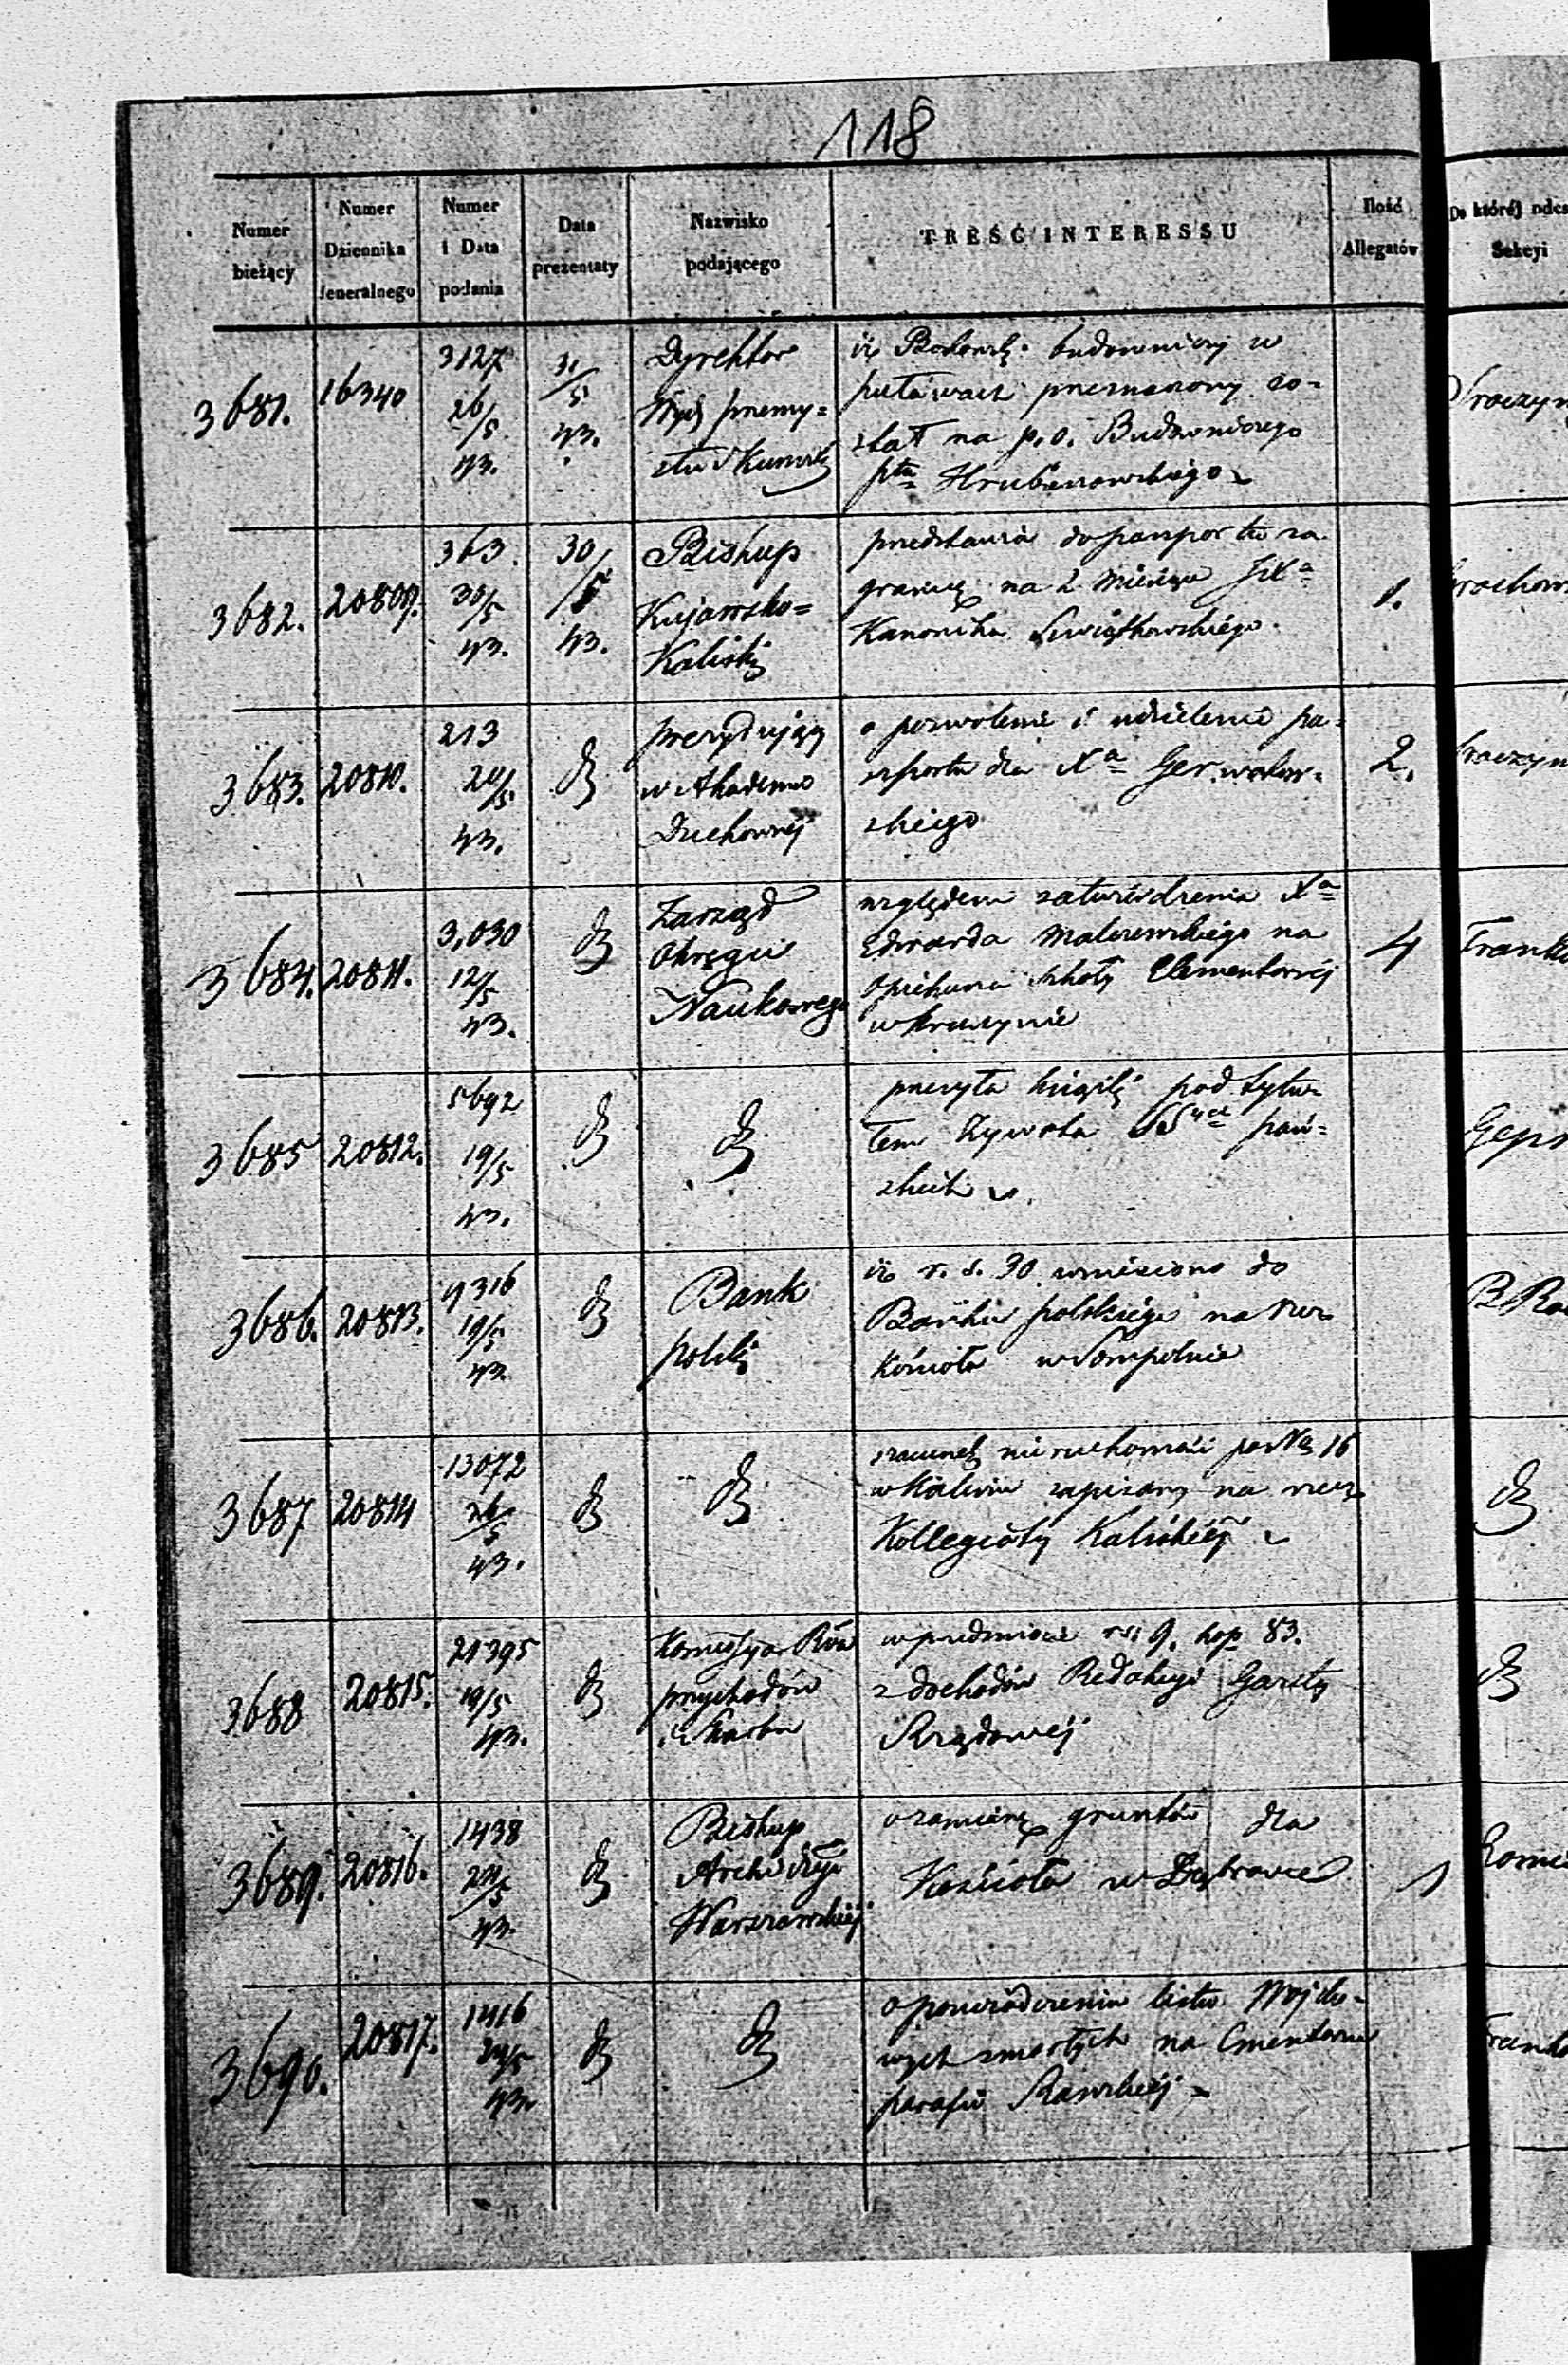 118
Numer bieżący
Numer Dziennika Jeneralnego
Numer i Data podania
Data prezentaty
Nazwisko podającego
TREŚĆ INTERESSU
Ilość Allegatów
Do której
Sekcyi
3681. 16340 3127 26/5 43. 31/5 43.
Dyrektor
Wydz przemy=
słu i Kunszt
iż budowniczy w
puławach przeznaczony zo-
stał na p.o. Budowniczego
ptu Hrubieszowskiego
3682. 20809. 363. 30/5 43. 30/5 43.
Biskup
Kujawsko=
Kaliski
przedstawia do paszportu za
granicę na 2 miesiące JXa
Kanonika Świątkowskiego.
1.
3683. 20810. 213 24/5 43. d
prezydujący
w Akademii
Duchownej
o pozwolenie i udzielenie pa-
szportu dla Xa
skiego
2.
3684. 20811. 3,030 12/5 43. d
Zarząd
Okręgu
Naukowego
względem zatwierdzenia Xa
Edwarda Malczewskiego na
Opiekuna szkoły Elementarnej
w Kruszynie
4
3685 20812. 5692 19/5 43. d
d
przesyła książki pod tytu-
łem Żywota SSych pań-
skich
3686. 20813. 9316 19/5 43. d
Bank
polski
iż r. s. 30 wniesiono do
Banku polskiego na rzecz
Kościoła w Sompolnie
3687 20814 13072 26/5 43. d
d
szacunek nieruchomości pod No 16
w Kaliszu zapisany na rzecz
Kollegiaty Kaliskiej
d
3688 20815. 21395 19/5 43. d
Komissya Rwa
przychodów
i Skarbu
w przedmiocie rs. 9. kop. 83.
z dochodów Redakcyi Gazety
Rządowej
d
3689. 20816. 1438 24/5 43. d
Biskup
Archidyi
Warszawskiej
o zamianę gruntów dla
Kościoła w Dąbrowie
1
3690. 20817. 1416 24/5 43. d
d
o poświadczeniu listu Wojsko-
wych zmarłych na Cmentarzu
parafii Rawskiej